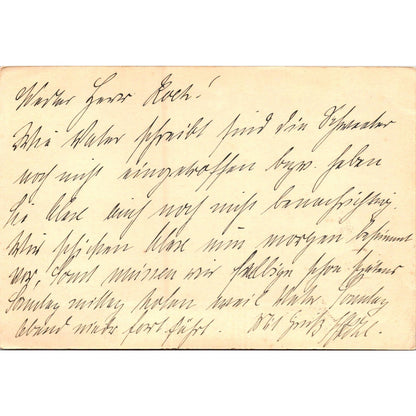 Werter Herr Koch!
Wie Vater schreibt sind die Schweater
noch nicht eingetroffen bzw. haben
Sie auch noch nicht benachrichtig.
Wir schicken nun morgen bestimmt
weg, sonst müssen wir selbige schon spätens
Sonntag mittag holen weil Vater Sonntag
Abend wieder fort fährt. Gruß